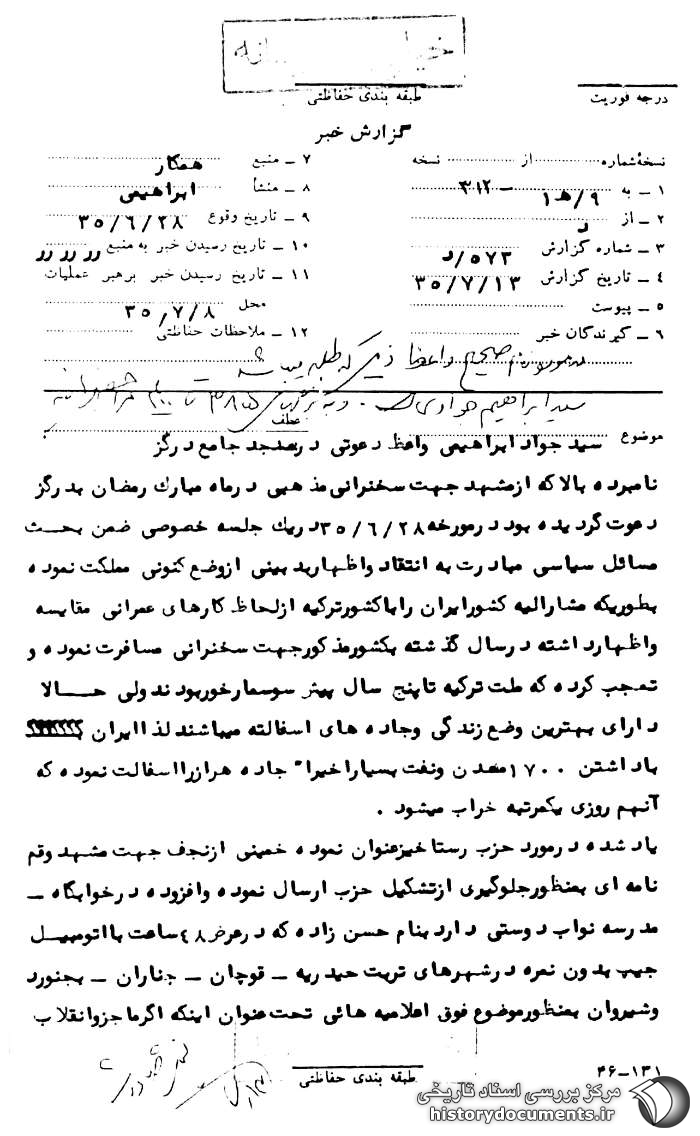 طبقه بندی حفاظتی
درجه فوریت
گزارش خبر
نسخهٔ شماره از نسخه
۱ ـ به ۹/هـ ۱ ـ ۳۱۲
۲ ـ از د
۳ ـ شماره گزارش ۵۷۲/د
۴ ـ تاریخ گزارش ۳۵/۷/۱۳
۵ ـ پیوست
۶ ـ گیرندگان خبر
۷ ـ منبع همکار
۸ ـ منشأ ابراهیمی
۹ ـ تاریخ وقوع ۳۵/۶/۲۸
۱۰ ـ تاریخ رسیدن خبر به منبع رر رر رر
۱۱ ـ تاریخ رسیدن خبر برهبر عملیات
محل ۳۵/۷/۸
۱۲ ـ ملاحظات حفاظتی
صحیح
سید ابراهیم جوادی
عطف
موضوع سید جواد ابراهیمی واعظ دعوتی درمسجد جامع درگز :
نامبرده بالا که ازمشهد جهت سخنرانی مذهبی درماه مبارك رمضان بدرگز
دعوت گردیده بود درمورخه ۳۵/۶/۲۸ دریك جلسه خصوصی ضمن بحث
مسائل سیاسی مبادرت به انتقاد واظهاربدبینی ازوضع کنونی مملکت نموده
بطوریکه مشارالیه کشورایران راباکشورترکیه ازلحاظ کارهای عمرانی مقایسه
واظهارداشته درسال گذشته بکشورمذکورجهت سخنرانی مسافرت نموده و
تعجب کرده که ملت ترکیه تاپنج سال پیش سوسمارخوربودند ولی حالا
دارای بهترین وضع زندگی وجاده های اسفالته میباشند لذا ایران
باداشتن ۱۷۰۰ معدن ونفت بسیاراخیراً جاده هرازرا اسفالت نموده که
آنهم روزی یکمرتبه خراب میشود .
یاد شده درمورد حزب رستاخیزعنوان نموده خمینی ازنجف جهت مشهد وقم
نامه ای بمنظورجلوگیری ازتشکیل حزب ارسال نموده وافزوده درخوابگاه ـ
مدرسه نواب دوستی دارد بنام حسن زاده که درعرض ۴۸ ساعت با اتومبیل
جیپ بدون نمره درشهرهای تربت حیدریه ـ قوچان ـ چناران ـ بجنورد
وشیروان بمنظورموضوع فوق اعلامیه هائی تحت عنوان اینکه اگرما جزوانقلاب
طبقه بندی حفاظتی
۴۶-۱۳۱
مرکز بررسی اسناد تاریخی
historydocuments.ir